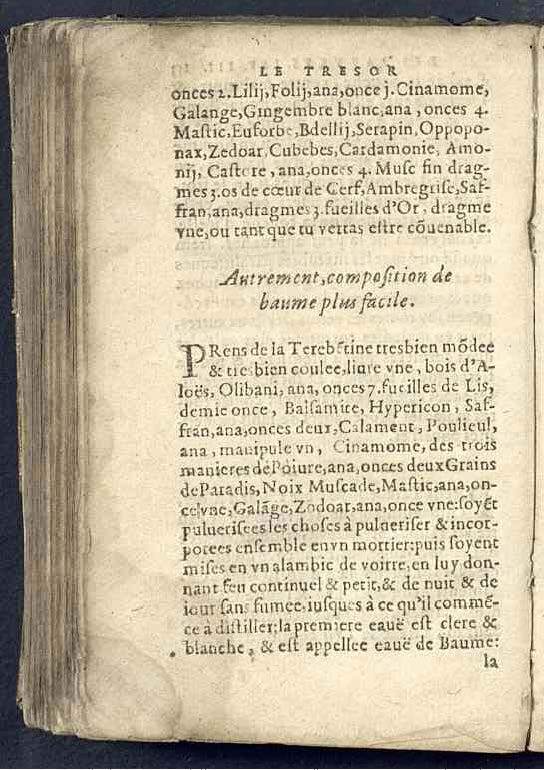 LE TRESOR
onces 2. Lilij, Folij, ana, once j. Cinamome,
Galange, Gingembre blanc, ana, onces 4.
Maſtic, Euforbe, Bdellij, Serapin, Oppopo-
nax, Zedoar, Cubebes, Cardamonie, Amo-
nij, Caſtore, ana, onces 4. Muſc fin drag-
mes 3. os de cœur de Cerf, Ambregriſe, Saf-
fran, ana, dragmes 3. fueilles d'Or, dragme
vne, ou tant que tu verras eſtre cõuenable.
Autrement, compoſition de
baume plus facile.
PRens de la Terebẽtine tresbien mõdee
& tresbien coulee, liure vne, bois d'A-
loës, Olibani, ana, onces 7. fueilles de Lis,
demie once, Balſamite, Hypericon, Saf-
fran, ana, onces deux, Calament, Poulieul,
ana, manipule vn, Cinamome, des trois
manieres de Poiure, ana, onces deux Grains
de Paradis, Noix Muſcade, Maſtic, ana, on-
ce vne, Galãge, Zodoar, ana, once vne: ſoyẽt
pulueriſees les choſes à pulueriſer & incor-
porees enſemble en vn mortier: puis ſoyent
miſes en vn alambic de voirre, en luy don-
nant feu continuel & petit, & de nuit & de
iour ſans fumee, iuſques à ce qu'il commẽ-
ce à diſtiller: la premiere eauë eſt clere &
blanche, & eſt appellee eauë de Baume:
la